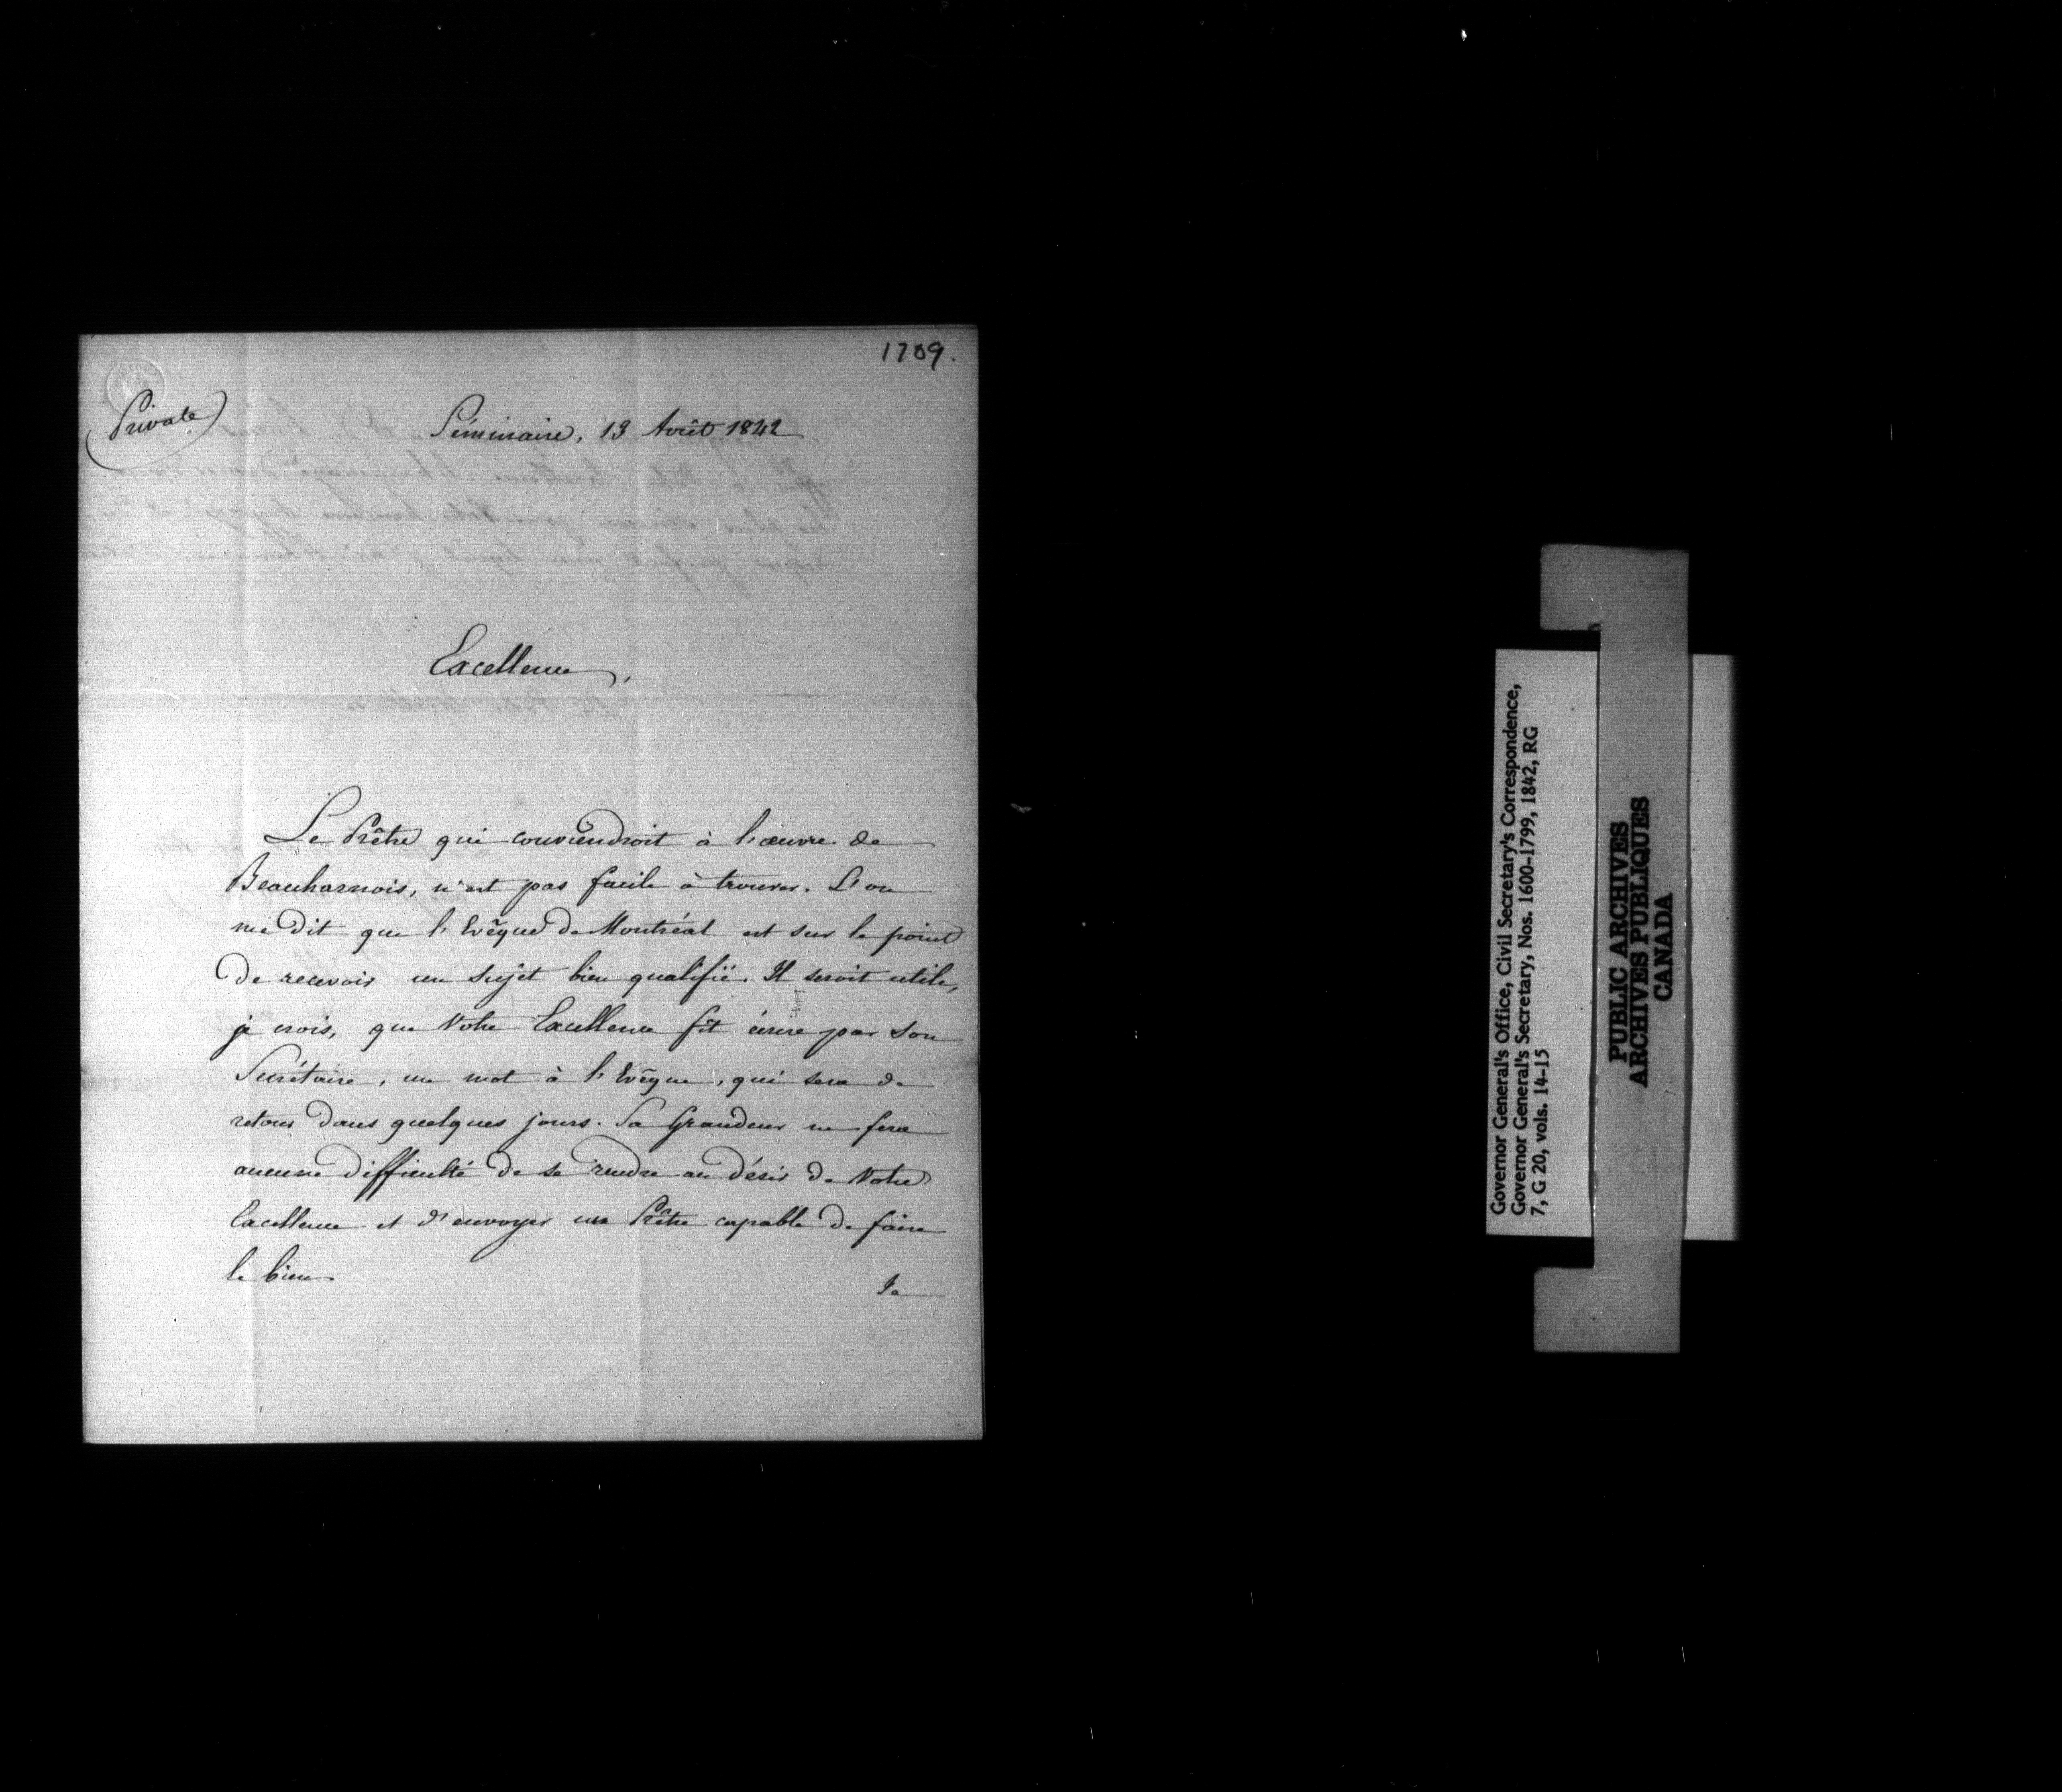 1709.
(Private)
Séminaire, 13 Août 1842
Excellence,
Le Prêtre qui conviendroit à l'œuvre de
Beauharnois, n'est pas facile à trouver. L'on
me dit que l'Evêque de Montréal est sur le point
de recevoir un sujet bien qualifié. Il seroit utile,
je crois, que Votre Excellence fît écrire par son
Secrétaire, un mot à l'Evêque, qui sera de
retour dans quelques jours. Sa Grandeur ne fera
aucune difficulté de se rendre au désir de Votre
Excellence et d'envoyer un Prêtre capable de faire
le bien.
Je
Governor General's Office, Civil Secretary's Correspondence,
Governor General's Secretary, Nos. 1600-1799, 1842, RG
7, G 20, vols. 14-15
PUBLIC ARCHIVES
ARCHIVES PUBLIQUES
CANADA